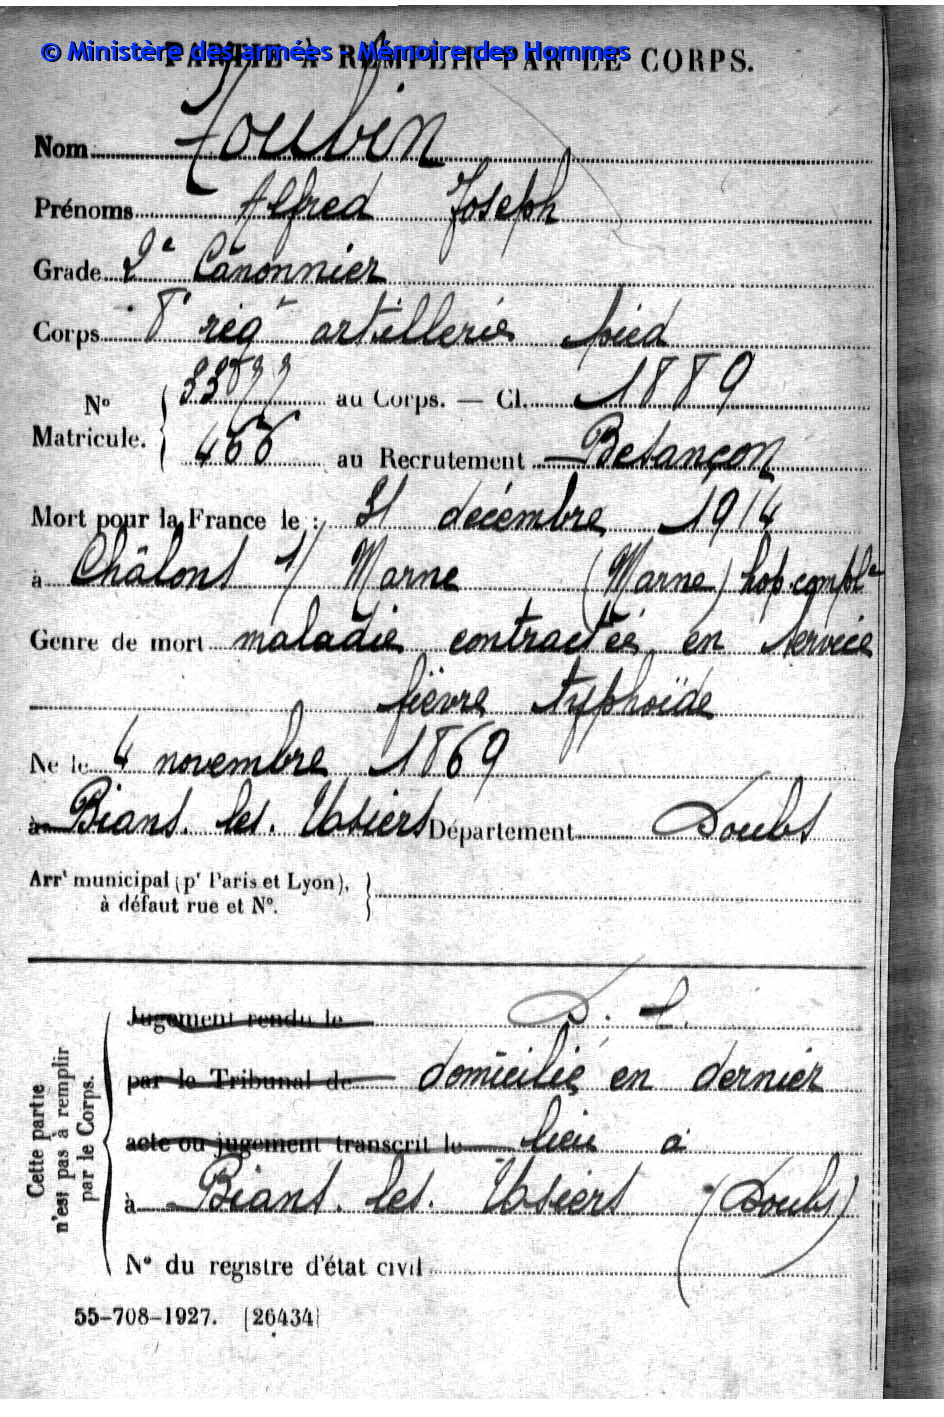 © Ministère des armées - Mémoire des Hommes
PARTIE À REMPLIR PAR LE CORPS.
Nom Joubin
Prénoms Alfred Joseph
Grade 2e Canonnier
Corps 8e régt artillerie pied
No Matricule. 33877 au Corps. — Cl. 1889
466 au Recrutement Besançon
Mort pour la France le : 31 décembre 1914
à Châlons s/ Marne (Marne) hop. complre
Genre de mort maladie contractée en service
fièvre typhoïde
Né le 4 novembre 1869
à Bians. les. Usiers Département Doubs
Arrt municipal (pr Paris et Lyon),
à défaut rue et No.
Cette partie
n'est pas à remplir
par le Corps.
Jugement rendu le D. L.
par le Tribunal de domicilié en dernier
acte ou jugement transcrit le lieu à
à Bians. les. Usiers (Doubs)
No du registre d'état civil
55-708-1927. [26434]